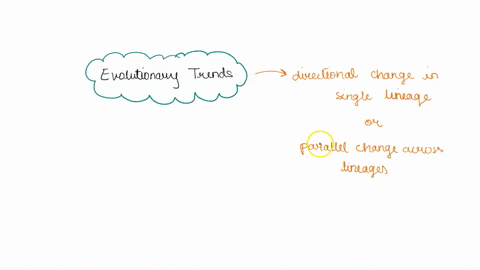 Evolutionary Trends
directional change in
single lineage
or
parallel change across
lineages